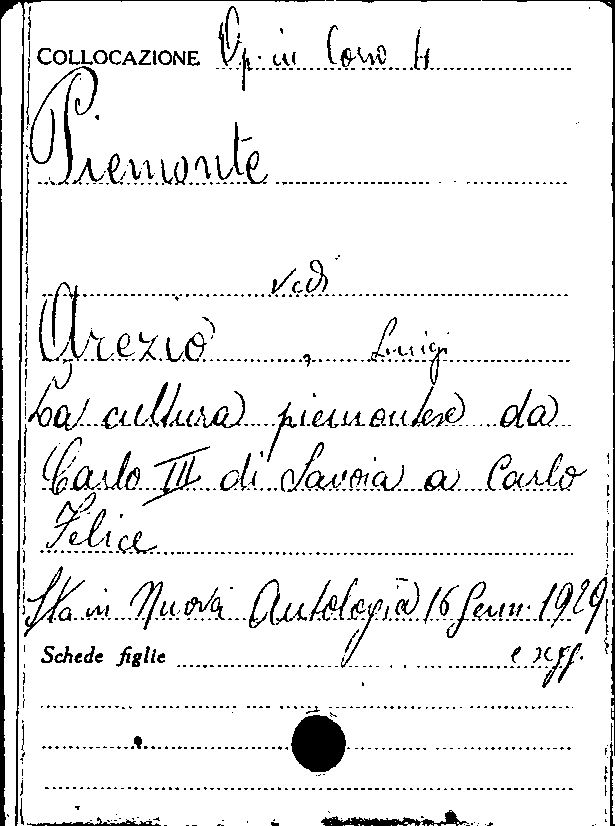 COLLOCAZIONE Op. in Corso 4
Piemonte
vedi
Arezio, Luigi
La cultura piemontese da
Carlo III di Savoia a Carlo
Felice
Sta in Nuova Antologia 16 Genn. 1929
Schede figlie e segg.